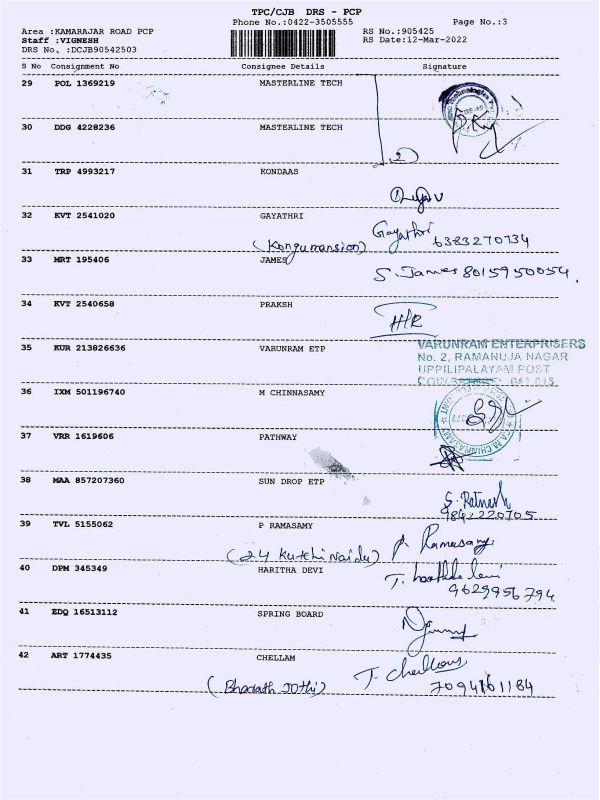 TPC/CJB DRS - PCP
Phone No.:0422-3505555 Page No.:3
Area :KAMARAJAR ROAD PCP RS No.:905425
Staff :VIGNESH RS Date:12-Mar-2022
DRS No. :DCJB90542503
S No Consignment No Consignee Details Signature
29 POL 1369219 MASTERLINE TECH
30 DDG 4228236 MASTERLINE TECH
2
31 TRP 4993217 KONDAAS
32 KVT 2541020 GAYATHRI Gayathri
(Kongumansion) 6383270734
33 MRT 195406 JAMES S. James 8015950054.
34 KVT 2540658 PRAKSH
35 KUR 213826636 VARUNRAM ETP
VARUNRAM ENTERPRISERS
No. 2, RAMANUJA NAGAR
UPPILIPALAYAM POST
36 IXM 501196740 M CHINNASAMY
37 VRR 1619606 PATHWAY
38 MAA 857207360 SUN DROP ETP
S. Ratnesh
39 TVL 5155062 P RAMASAMY P. Ramasamy
(24 Kutchi Naidu)
40 DPM 345349 HARITHA DEVI
9629956794
41 EDQ 16513112 SPRING BOARD
42 ART 1774435 CHELLAM T. Chellam
(Bharath Jothi) 7094161184